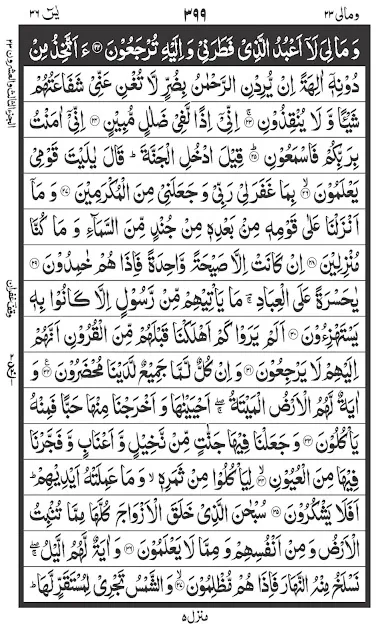 ومالی ۲۳ ۳۹۹ یٰسٓ ۳۶
وَمَالِیَ لَاۤ اَعْبُدُ الَّذِیْ فَطَرَنِیْ وَاِلَیْهِ تُرْجَعُوْنَ ﴿۲۲﴾ ءَاَتَّخِذُ مِنْ
دُوْنِهٖۤ اٰلِهَةً اِنْ یُّرِدْنِ الرَّحْمٰنُ بِضُرٍّ لَّا تُغْنِ عَنِّیْ شَفَاعَتُهُمْ
شَیْـًٔا وَّلَا یُنْقِذُوْنِ ﴿۲۳﴾ اِنِّیْۤ اِذًا لَّفِیْ ضَلٰلٍ مُّبِیْنٍ ﴿۲۴﴾ اِنِّیْۤ اٰمَنْتُ
بِرَبِّكُمْ فَاسْمَعُوْنِ ﴿۲۵﴾ قِیْلَ ادْخُلِ الْجَنَّةَ ؕ قَالَ یٰلَیْتَ قَوْمِیْ
یَعْلَمُوْنَ ﴿۲۶﴾ بِمَا غَفَرَ لِیْ رَبِّیْ وَجَعَلَنِیْ مِنَ الْمُكْرَمِیْنَ ﴿۲۷﴾ وَمَاۤ
اَنْزَلْنَا عَلٰی قَوْمِهٖ مِنْۢ بَعْدِهٖ مِنْ جُنْدٍ مِّنَ السَّمَآءِ وَمَا كُنَّا
مُنْزِلِیْنَ ﴿۲۸﴾ اِنْ كَانَتْ اِلَّا صَیْحَةً وَّاحِدَةً فَاِذَا هُمْ خٰمِدُوْنَ ﴿۲۹﴾
یٰحَسْرَةً عَلَی الْعِبَادِ ۚ مَا یَاْتِیْهِمْ مِّنْ رَّسُوْلٍ اِلَّا كَانُوْا بِهٖ
یَسْتَهْزِءُوْنَ ﴿۳۰﴾ اَلَمْ یَرَوْا كَمْ اَهْلَكْنَا قَبْلَهُمْ مِّنَ الْقُرُوْنِ اَنَّهُمْ
اِلَیْهِمْ لَا یَرْجِعُوْنَ ﴿۳۱﴾ وَاِنْ كُلٌّ لَّمَّا جَمِیْعٌ لَّدَیْنَا مُحْضَرُوْنَ ﴿۳۲﴾ وَ
اٰیَةٌ لَّهُمُ الْاَرْضُ الْمَیْتَةُ ۖۚ اَحْیَیْنٰهَا وَاَخْرَجْنَا مِنْهَا حَبًّا فَمِنْهُ
یَاْكُلُوْنَ ﴿۳۳﴾ وَجَعَلْنَا فِیْهَا جَنّٰتٍ مِّنْ نَّخِیْلٍ وَّاَعْنَابٍ وَّفَجَّرْنَا
فِیْهَا مِنَ الْعُیُوْنِ ﴿۳۴﴾ لِیَاْكُلُوْا مِنْ ثَمَرِهٖ ۙ وَمَا عَمِلَتْهُ اَیْدِیْهِمْ ؕ
اَفَلَا یَشْكُرُوْنَ ﴿۳۵﴾ سُبْحٰنَ الَّذِیْ خَلَقَ الْاَزْوَاجَ كُلَّهَا مِمَّا تُنْۢبِتُ
الْاَرْضُ وَمِنْ اَنْفُسِهِمْ وَمِمَّا لَا یَعْلَمُوْنَ ﴿۳۶﴾ وَاٰیَةٌ لَّهُمُ الَّیْلُ ۖۚ
نَسْلَخُ مِنْهُ النَّهَارَ فَاِذَا هُمْ مُّظْلِمُوْنَ ﴿۳۷﴾ وَالشَّمْسُ تَجْرِیْ لِمُسْتَقَرٍّ لَّهَا ؕ
منزل ۵
الجزء الثالث والعشرون ۲۳
وقف غفران